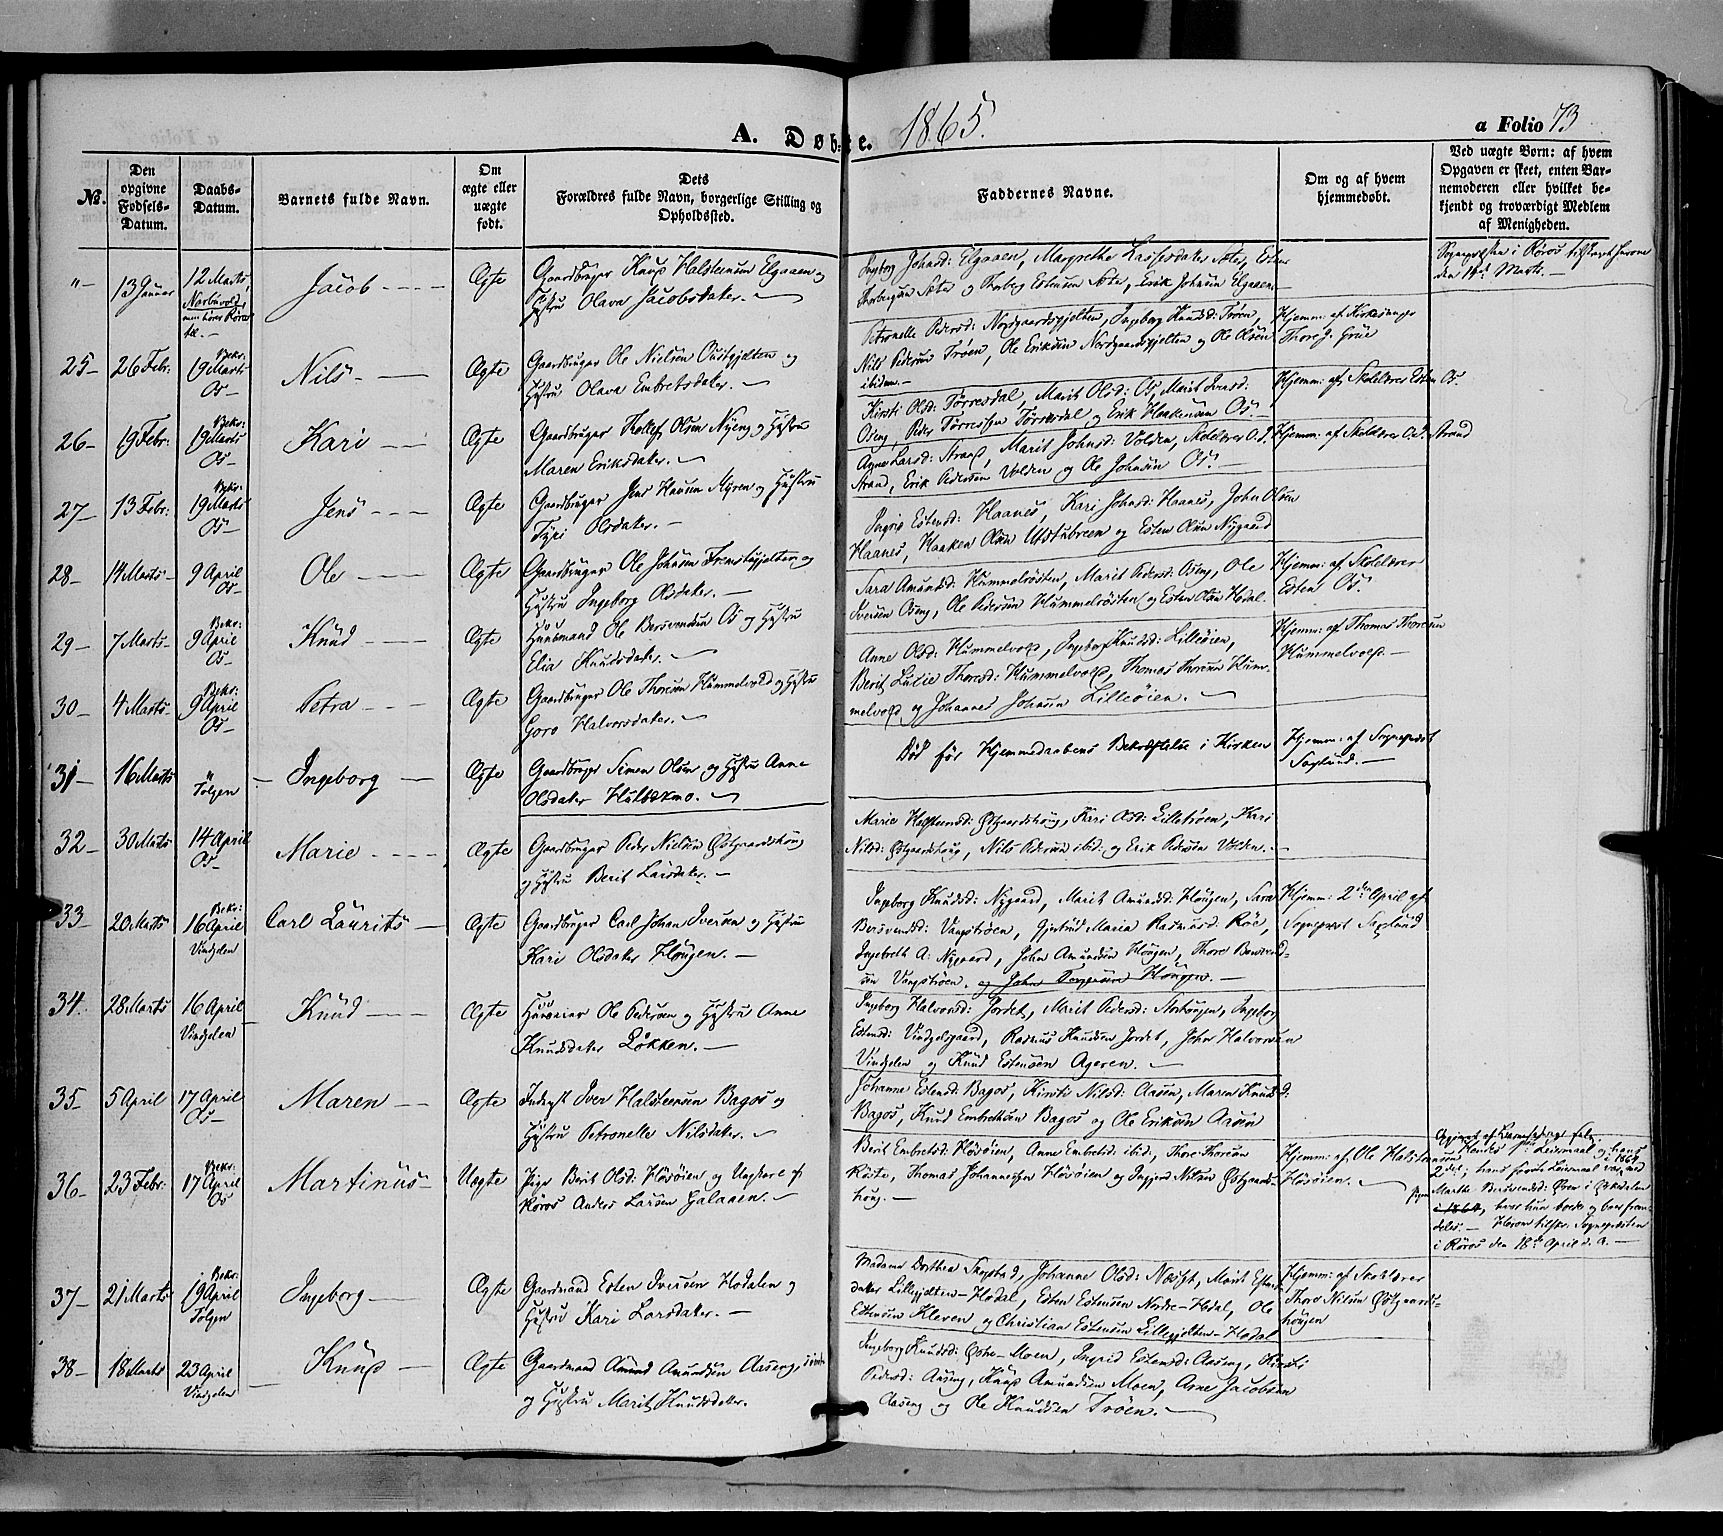 A. Døbte. 1865. a Folio 73
No.
Den opgivne Fødsels-Datum.
Daabs-Datum.
Barnets fulde Navn.
Om ægte eller uægte født.
Dets Forældres fulde Navn, borgerlige Stilling og Opholdssted.
Faddernes Navne.
Om og af hvem hjemmedøbt.
Ved uægte Børn: af hvem Opgaven er skeet, enten Barnemoderen eller hvilket bekjendt og troværdigt Medlem af Menigheden.
"- 13 Januar 12 Marts, Jacob Ægte Gaardbruger Knud Halsteensen Elgaaen og
Hustru Olava Jacobsdatter.
Ingeborg Johnsd: Elgaaen, Margrethe
Sæter og Esten Sæter, Erik Johnsen Elgaaen
Sognepræsten i Røros tilskrevet herom
den 14de Marts.
25- 26 Febr: Bekr: 19 Marts Os- Nils Ægte Gaardbruger Ole Nielsen Oustgjelten og
Hustru Olava Embretsdatter.
Petronelle Pedersd: Nordgaardsgjelten, Ingeborg Knudsd: Trøen,
Nils Pedersen Trøen, Ole Eriksen Nordgaardsgjelten og Ole Olsen
ibidem.
Hjemm: af Kirkesanger
Thore J. Grue
26- 19 Febr: Bekr: 19 Marts Os- Kari Ægte Gaardbruger Olsen Nyeng og Hustru
Maren Eriksdatter.
Kirsti Olsd: Tørresdal, Marit Olsd: Os, Marit Iversd:
Oseng, Peder Tørressen Tørresdal og Erik Haakensen Os.
Hjemm: af Skolelærer Esten Os.
27- 13 Febr: Bekr: 19 Marts Os- Jens Ægte Gaardbruger Jens Hansen Myren og Hustru
Olsdatter.
Agne Larsd: Strand, Marit Johnsd: Volden, Skolelærer O. J.
Strand, Erik Pedersen Volden og Ole Johnsen Os.
Hjemm: af Skolelærer O. J. Strand
28- 14 Marts 9 April Os- Ole Ægte Gaardbruger Ole Johnsen Fremstgjelten og
Hustru Ingeborg Olsdatter.
Ingrid Estensd: Haanes, Kari Johnsd: Haanes, John Olsen
Haanes, Haaken Olsen og Esten Olsen Nygaard
29- 7 Marts Bekr: 9 April Os- Knud Ægte Huusmand Ole Bersvendsen Os og Hustru
Elia Knudsdatter.
Sara Amundsd: Hummelrøsten, Marit Pedersd: Oseng, Ole
Iversen Oseng, Ole Pedersen Hummelrøsten og Esten Olsen Hodal.
Hjemm: af Skolelærer
Esten Os.
30- 4 Marts Bekr: 9 April Os- Petra Ægte Gaardbruger Ole Thoresen Hummelvold og Hustru
Goro Halvorsdatter.
Anne Olsd: Hummelvold, Ingeborg Knudsd: Lilleøien,
Berit Lutie Thoresd: Hummelvold, Thomas Thoresen Hum-
melvold og Johannes Johnsen Lilleøien.
Hjemm: af Thomas Thoresen
Hummelvold.
31- 16 Marts " Tolgen Ingeborg Ægte Gaardbruger Simen Olsen og Hustru Anne
Olsdatter Hulbækmo.
Død før Hjemmedaabens Bekræftelse i Kirken
Hjemm: af Sognepræst
Saglund.
32- 30 Marts 14 April Os- Marie Ægte Gaardbruger Peder Nielsen Østgaardshoug
og Hustru Berit Larsdatter.
Marie Halstensd: Østgaardshoug, Kari Olsd: Lilletrøen, Kari
Nilsd: Østgaardshoug, Nils Pedersen ibid: og Erik Pedersen Volden.
33- 20 Marts Bekr: 16 April Vingelen Carl Laurits Ægte Gaardbruger Carl Johan Iversen og Hustru
Kari Olsdatter Hougen.
Ingeborg Knudsd: Nygaard, Marit Amundsd: Hougen, Sara
Bersvendsd: Vangstrøen, Gjertrud Maria Rasmusd: Røe,
Ingebreth A: Nygaard, John Amundsen Hougen, Thore Bersvend-
sen Vangstrøen. og John Hougen.
Hjemm: 2den April af
Sognepræst Saglund
34. 28 Marts 16 April Vingelen Knud Ægte Huuseier Ole Pedersen og Hustru Anne
Knudsdatter Løkken.
Ingeborg Halvorsd: Jordet, Marit Pedersd: Storhougen, Ingeborg
Estensd: Vingelsgaard, Rasmus Knudsen Jordet, John Halvorsen
Vingelen og Knud Estensen Ageren.
35- 5 April 17 April Os- Maren Ægte Inderst Iver Halsteensen Bagos og
Hustru Petronelle Nilsdatter.
Johanne Estensd: Bagos, Kirsti Nilsd: Aasen, Maren Knudsd:
Bagos, Knud Embrethsen Bagos og Ole Eriksen Aasen
36- 23 Febr: Bekr: 17 April Os Martinus Uægte Pige Berit Olsd: Høsøien og Ungkarl af
Røros Anders Larsen Galaaen.
Berit Embretsd: Høsøien, Anne Embretsd: ibid., Thore Thoresen
Røste, Thomas Johannessen Høsøien og Ingjer Nilsen Østgaards-
houg.
Hjemm: af Ole Halstensen
Høsøien.
Opgivet af Barnefader
Hendes 1ste Leiermaal og hans
2det; hans første Leiermaal var med
Marthe Bersvendsd: Øien i Ørkedalen
i 1864, hvor hun boede og boer frem-
deles. Herom tilskr: Sognepræsten
i Røros den 18de April d. A.
37- 21 Marts Bekr: 19 April Tolgen Ingeborg Ægte Gaardmand Esten Iversen Hodalen og
Hustru Kari Larsdatter.
Madame Dorthea Skogstad, Johanne Olsd: Næset, Marit Estens-
datter Lillegjelten-Hodal, Esten Estensen Nordre-Hodal, Ole
Estensen Kleven og Christian Estensen Lillegjelten-Hodal
Hjemm: af Skolelærer
Thore Nilsen Østgaards-
hougen
38- 18 Marts 23 April Vingelen Knud Ægte Gaardmand Amund Amundsen Aaseng,
og Hustru Marit Knudsdatter.
Ingeborg Knudsd: Østre-Moen, Ingrid Estensd: Aaseng, Kirsti
Pedersd: Aaseng, Knud Amundsen Moen, Arne Jacobsen
Aaseng og Ole Knudsen Trøen.